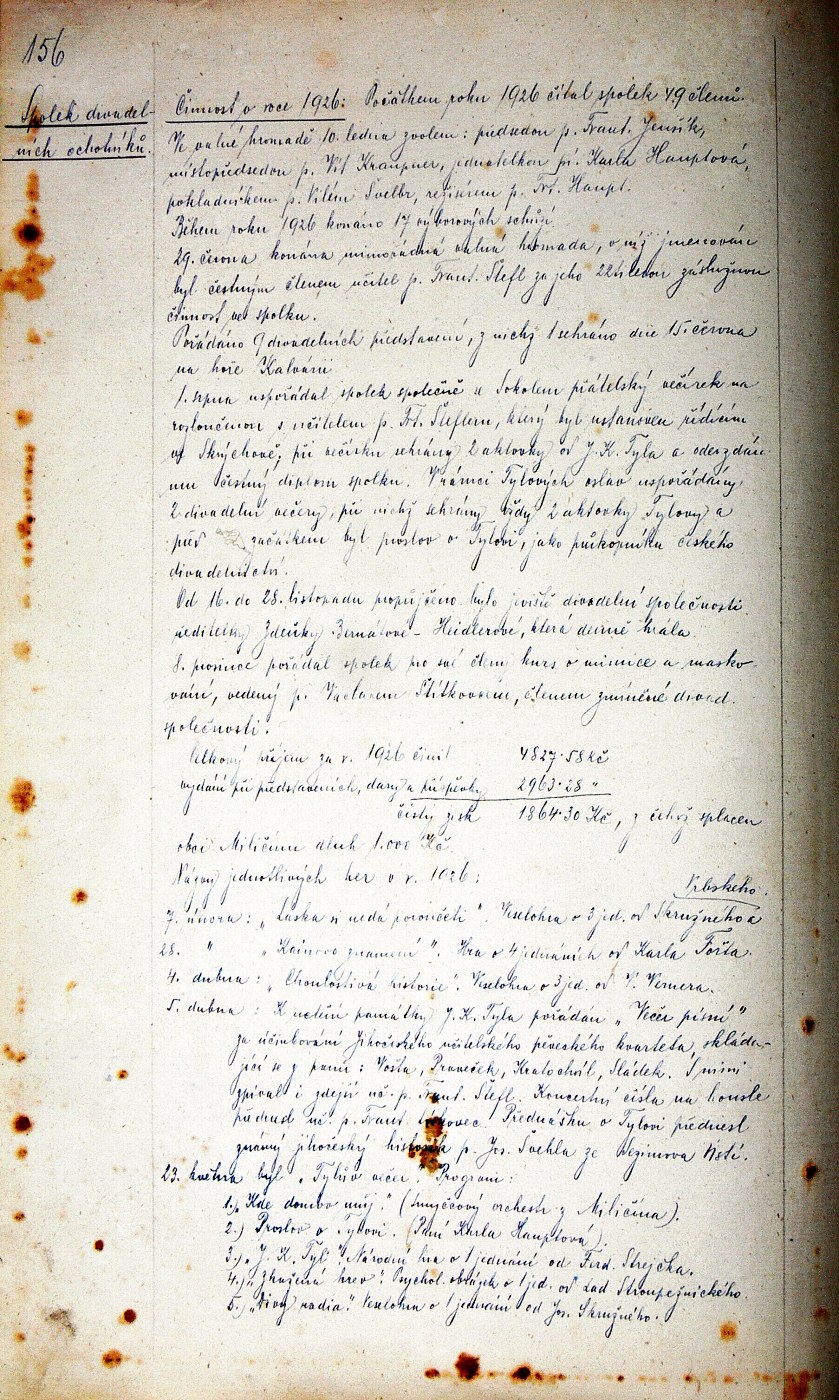 156
Spolek divadel-
ních ochotníků.
Činnost v roce 1926: Počátkem roku 1926 čítal spolek 49 členů.
Ve valné hromadě 10. ledna zvolen: předsedou p. Frant. Jeníšík,
místopředsedou p. Vít Kraupner, jednatelkou pí. Karla Hauptová,
pokladníkem p. Vilém Švelbr, režisérem p. Frt. Haupt.
Během roku 1926 konáno 17 výborových schůzí
29. června konána mimořádná valná hromada, v níž jmenován
byl čestným členem učitel p. Frant. Štefl za jeho 22tiletou záslužnou
činnost ve spolku.
Pořádáno 9 divadelních představení, z nichž 1 sehráno dne 15. června
na hoře Kalvárii
1. srpna uspořádal spolek společně se Sokolem přátelský večírek na
rozloučenou s učitelem p. Frt. Šteflem, který byl ustanoven řídícím
ve Skrýchově, při večírku sehrány 2 aktovky od J. K. Tyla a odevzdán
mu čestný diplom spolku. V rámci Tylových oslav uspořádány
2 divadelní večery, při nichž sehrány vždy 2 aktovky Tylovy a
před začátkem byl proslov o Tylovi, jako průkopníku českého
divadelnictví.
Od 16. do 28. listopadu propůjčeno bylo jeviště divadelní společnosti
ředitelky Zdeňky Bernátové-Heidlerové, která denně hrála.
8. prosince pořádal spolek pro své členy kurs o mimice a masko-
vání, vedený p. Vaclavem Štítkovcem, členem zmíněné divad.
společnosti.
Celkový příjem za r. 1926 činil 4827·58 Kč
vydání při představeních, dary a příspěvky 2963·28 "
čistý zisk 1864·30 Kč, z čehož splacen
obci Miličínu dluh 1.000 Kč.
Názvy jednotlivých her v r. 1926:
Srbského.
7. února: „Láska si nedá poroučeti". Veselohra o 3 jed. od Skružného a
28. " „Kainovo znamení". Hra o 4 jednáních od Karla Fořta.
4. dubna: „Choulostivá historie". Veselohra o 3 jed. od V. Vernera.
5. dubna: K uctění památky J. K. Tyla pořádán „Večer písní"
za účinkování Jihočeského učitelského pěveckého kvarteta, skláda-
jící se z pánů: Vošta, Prováček, Kratochvíl, Sládek. S nimi
zpíval i zdejší uč. p. Frant. Štefl. Koncertní čísla na housle
přednesl uč. p. Frant. Církovec. Přednášku o Tylovi přednesl
známý jihočeský historik p. Jos. Švehla ze Sezimova Ústí.
23. května byl „Tylův večer". Program:
1.) „Kde domov můj." (Smyčcový orchestr z Miličína).
2.) Proslov o Tylovi. (Paní Karla Hauptová).
3.) „J. K. Tyl". Národní hra o 1 jednání od Ferd. Strejčka.
4.) „Zkažená krev". Psychol. obrázek o 1 jed. od Lad Stroupežnického.
5.) „Divy radia". Veselohra o 1 jednání od Jos. Skružného.